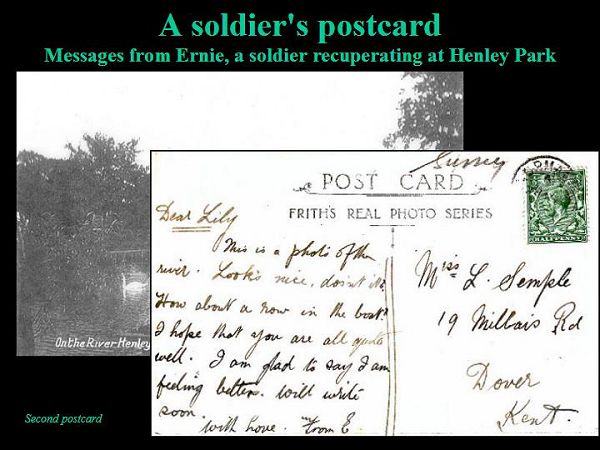 A soldier's postcard
Messages from Ernie, a soldier recuperating at Henley Park
On the River Henley
Surrey
POST CARD
FRITH'S REAL PHOTO SERIES
HALFPENNY
Dear Lily
This is a photo of the
river. Looks nice, doint it?
How about a row in the boat?
I hope that you are all quite
well. I am glad to say I am
feeling better. Will write
soon.
With Love. From E
Miss L. Semple
19 Millais Rd
Dover
Kent.
Second postcard